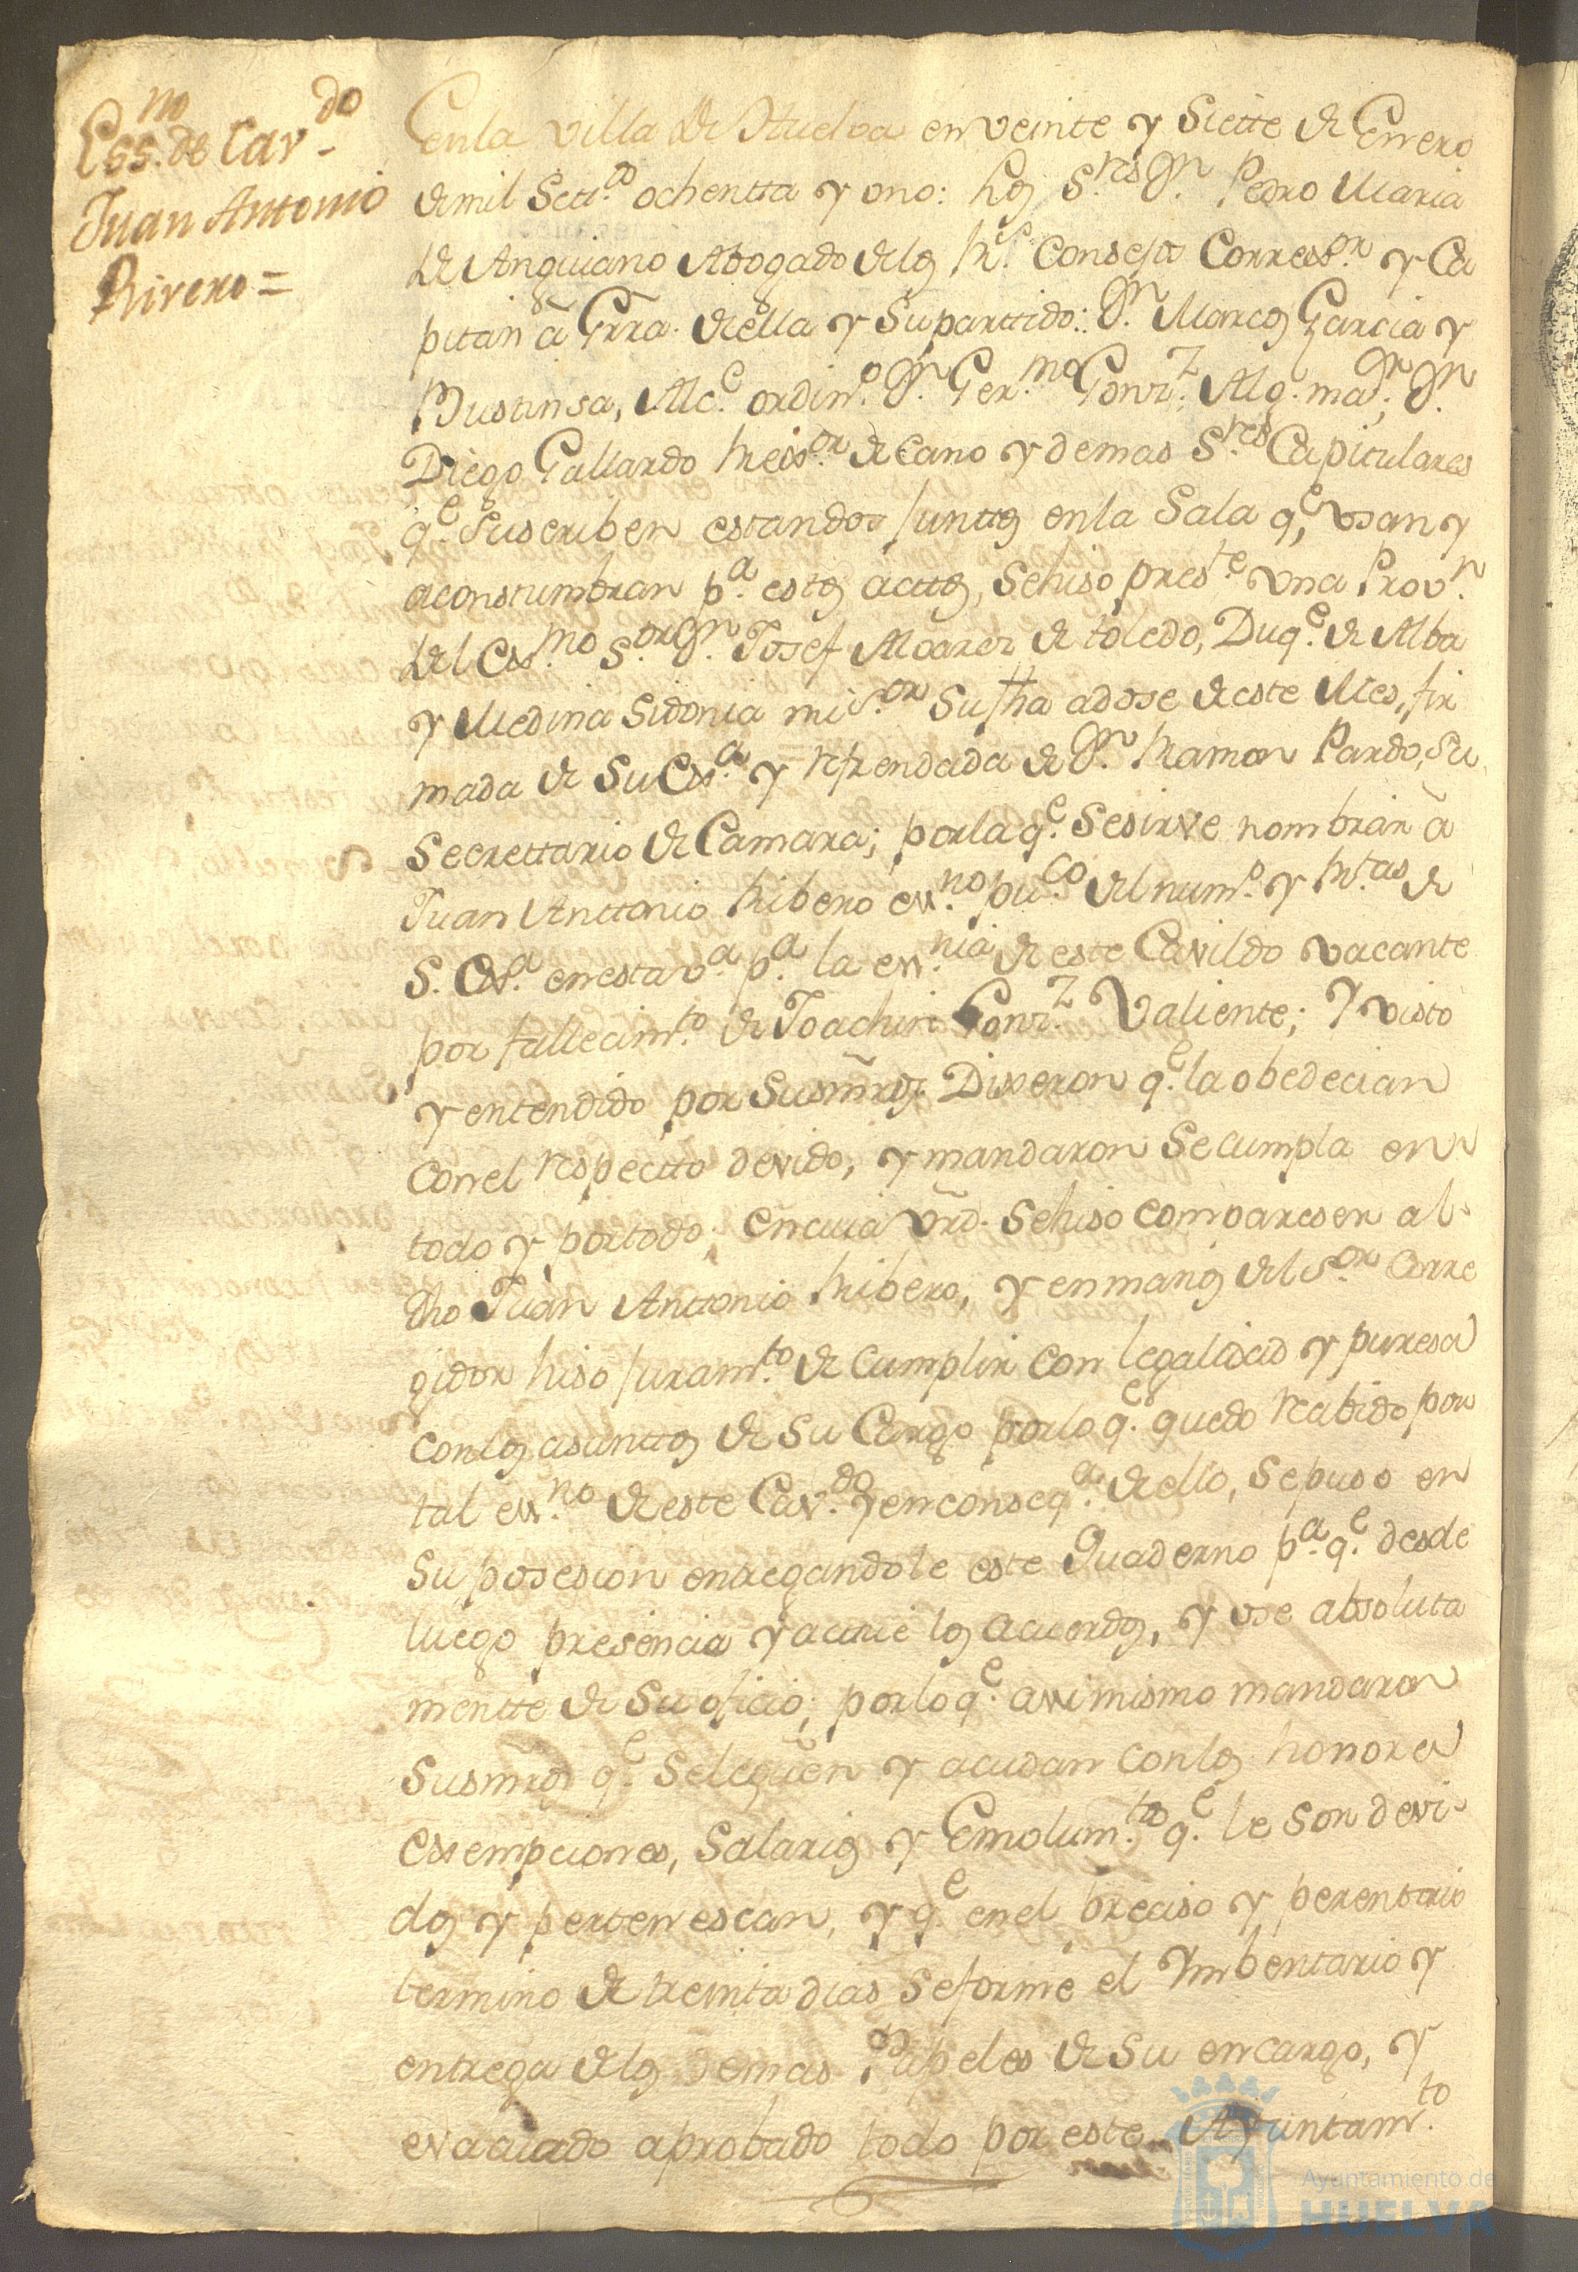 Ess.no de Cav.do
Juan Antonio
Rivero =
En la villa de Huelva en veinte y Siette de Henero
de mil Sett.os ochentta y uno: los S.res D.n Pedro Maria
de Anguiano Abogado de los R.s Consejos Correx.or y Ca
pitan â Grra. de ella y Su parttido: D.n Marcos Garcia y
Bustinsa, Alc.e ordin.o D.n Ger.mo Gonz.z Alg. ma.r; D.n
Diego Gallardo Rexid.or decano y demas S.res Capitulares
q.e Suscriben estando Junttos en la Sala q.e usan y
aconstumbran p.a estos acttos, Se hiso pres.te una Prov.n
del Ex.mo S.or D.n Josef Alvarez de toledo, Duq.e de Alba
y Medina Sidonia mi S.or Su fha a dose de este Mes, fir
mada de Su Ex.a y refrendada de D.n Ramon Pardo, Su
Secrettario de Camara; por la q.e Se sirve nombrar â
Juan Anttonio Ribero ess.no pu.co del num.o y R.tas de
S. Ex.a en esta v.a p.a la ess.nia de este Cavildo vacante
por fallecim.to de Joachin Gonz.z Valiente; Y visto
y entendido por Sus mrds. Dixeron q.e la obedecian
con el respectto devido, y mandaron Se cumpla en
todo y por todo; en cuia vrd. Se hiso comparesen al
dho Juan Anttonio Ribero, y en manos del S.or Corre
gidor hiso Juram.to de Cumplir con legalidad y puresa
con los asunttos de Su Cargo por lo q.e quedo recibido por
tal ess.no de este Cav.do y en conseq.a de ello, Se puso en
Su posesion entregandole este Quaderno p.a q.e desde
luego presencia y actue los acuerdos, y use absoluta
mentte de Su oficio; por lo q.e assi mismo mandaron
Sus mrds q.e Se le guden y acudan con los honores
exsempciones, Salarios y Emolum.tos q.e le Son devi-
dos y pertenescan, y q.e en el preciso y perentorio
termino de treinta dias Se forme el Ymbentario y
entrega de los demas Papeles de Su encargo, y
evacuado aprobado todo por este Ayuntam.to
Ayuntamiento de
HUELVA